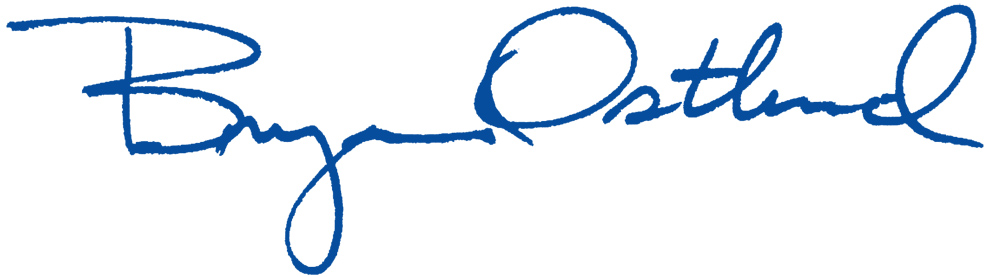 Bryan Ostlund